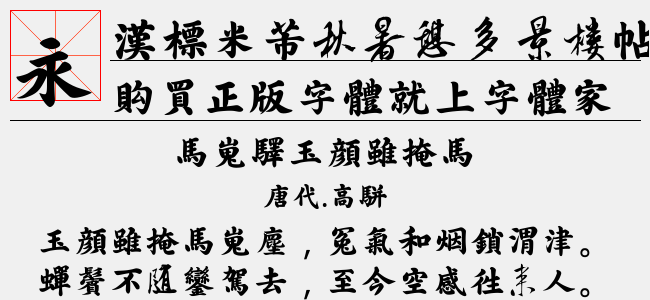 永
漢標米芾秋暑憩多景楼帖
購買正版字體就上字體家
馬嵬驛玉顔雖掩馬
唐代.高駢
玉顔雖掩馬嵬塵，冤氣和烟鎖渭津。
蟬鬢不随鑾駕去，至今空感徃来人。